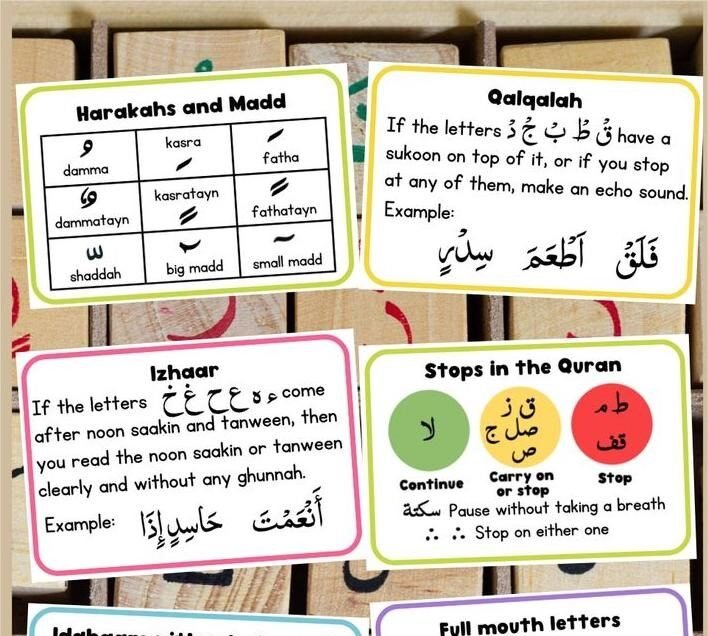 Harakahs and Madd
ُ kasra َ
damma ِ fatha
ٌ kasratayn ً
dammatayn ٍ fathatayn
ّ ~ ~
shaddah big madd small madd
Qalqalah
If the letters قْ طْ بْ جْ دْ have a
sukoon on top of it, or if you stop
at any of them, make an echo sound.
Example:
فَلَقْ أَطْعَمَ سِدْرٍ
Izhaar
If the letters ء ه ع ح غ خ come
after noon saakin and tanween, then
you read the noon saakin or tanween
clearly and without any ghunnah.
Example: أَنْعَمْتَ حَاسِدٍ إِذَا
Stops in the Quran
لا
ق ز
صل ج
ص
ط م
قف
Continue
Carry on
or stop
Stop
سكتة Pause without taking a breath
∴ ∴ Stop on either one
Full mouth letters